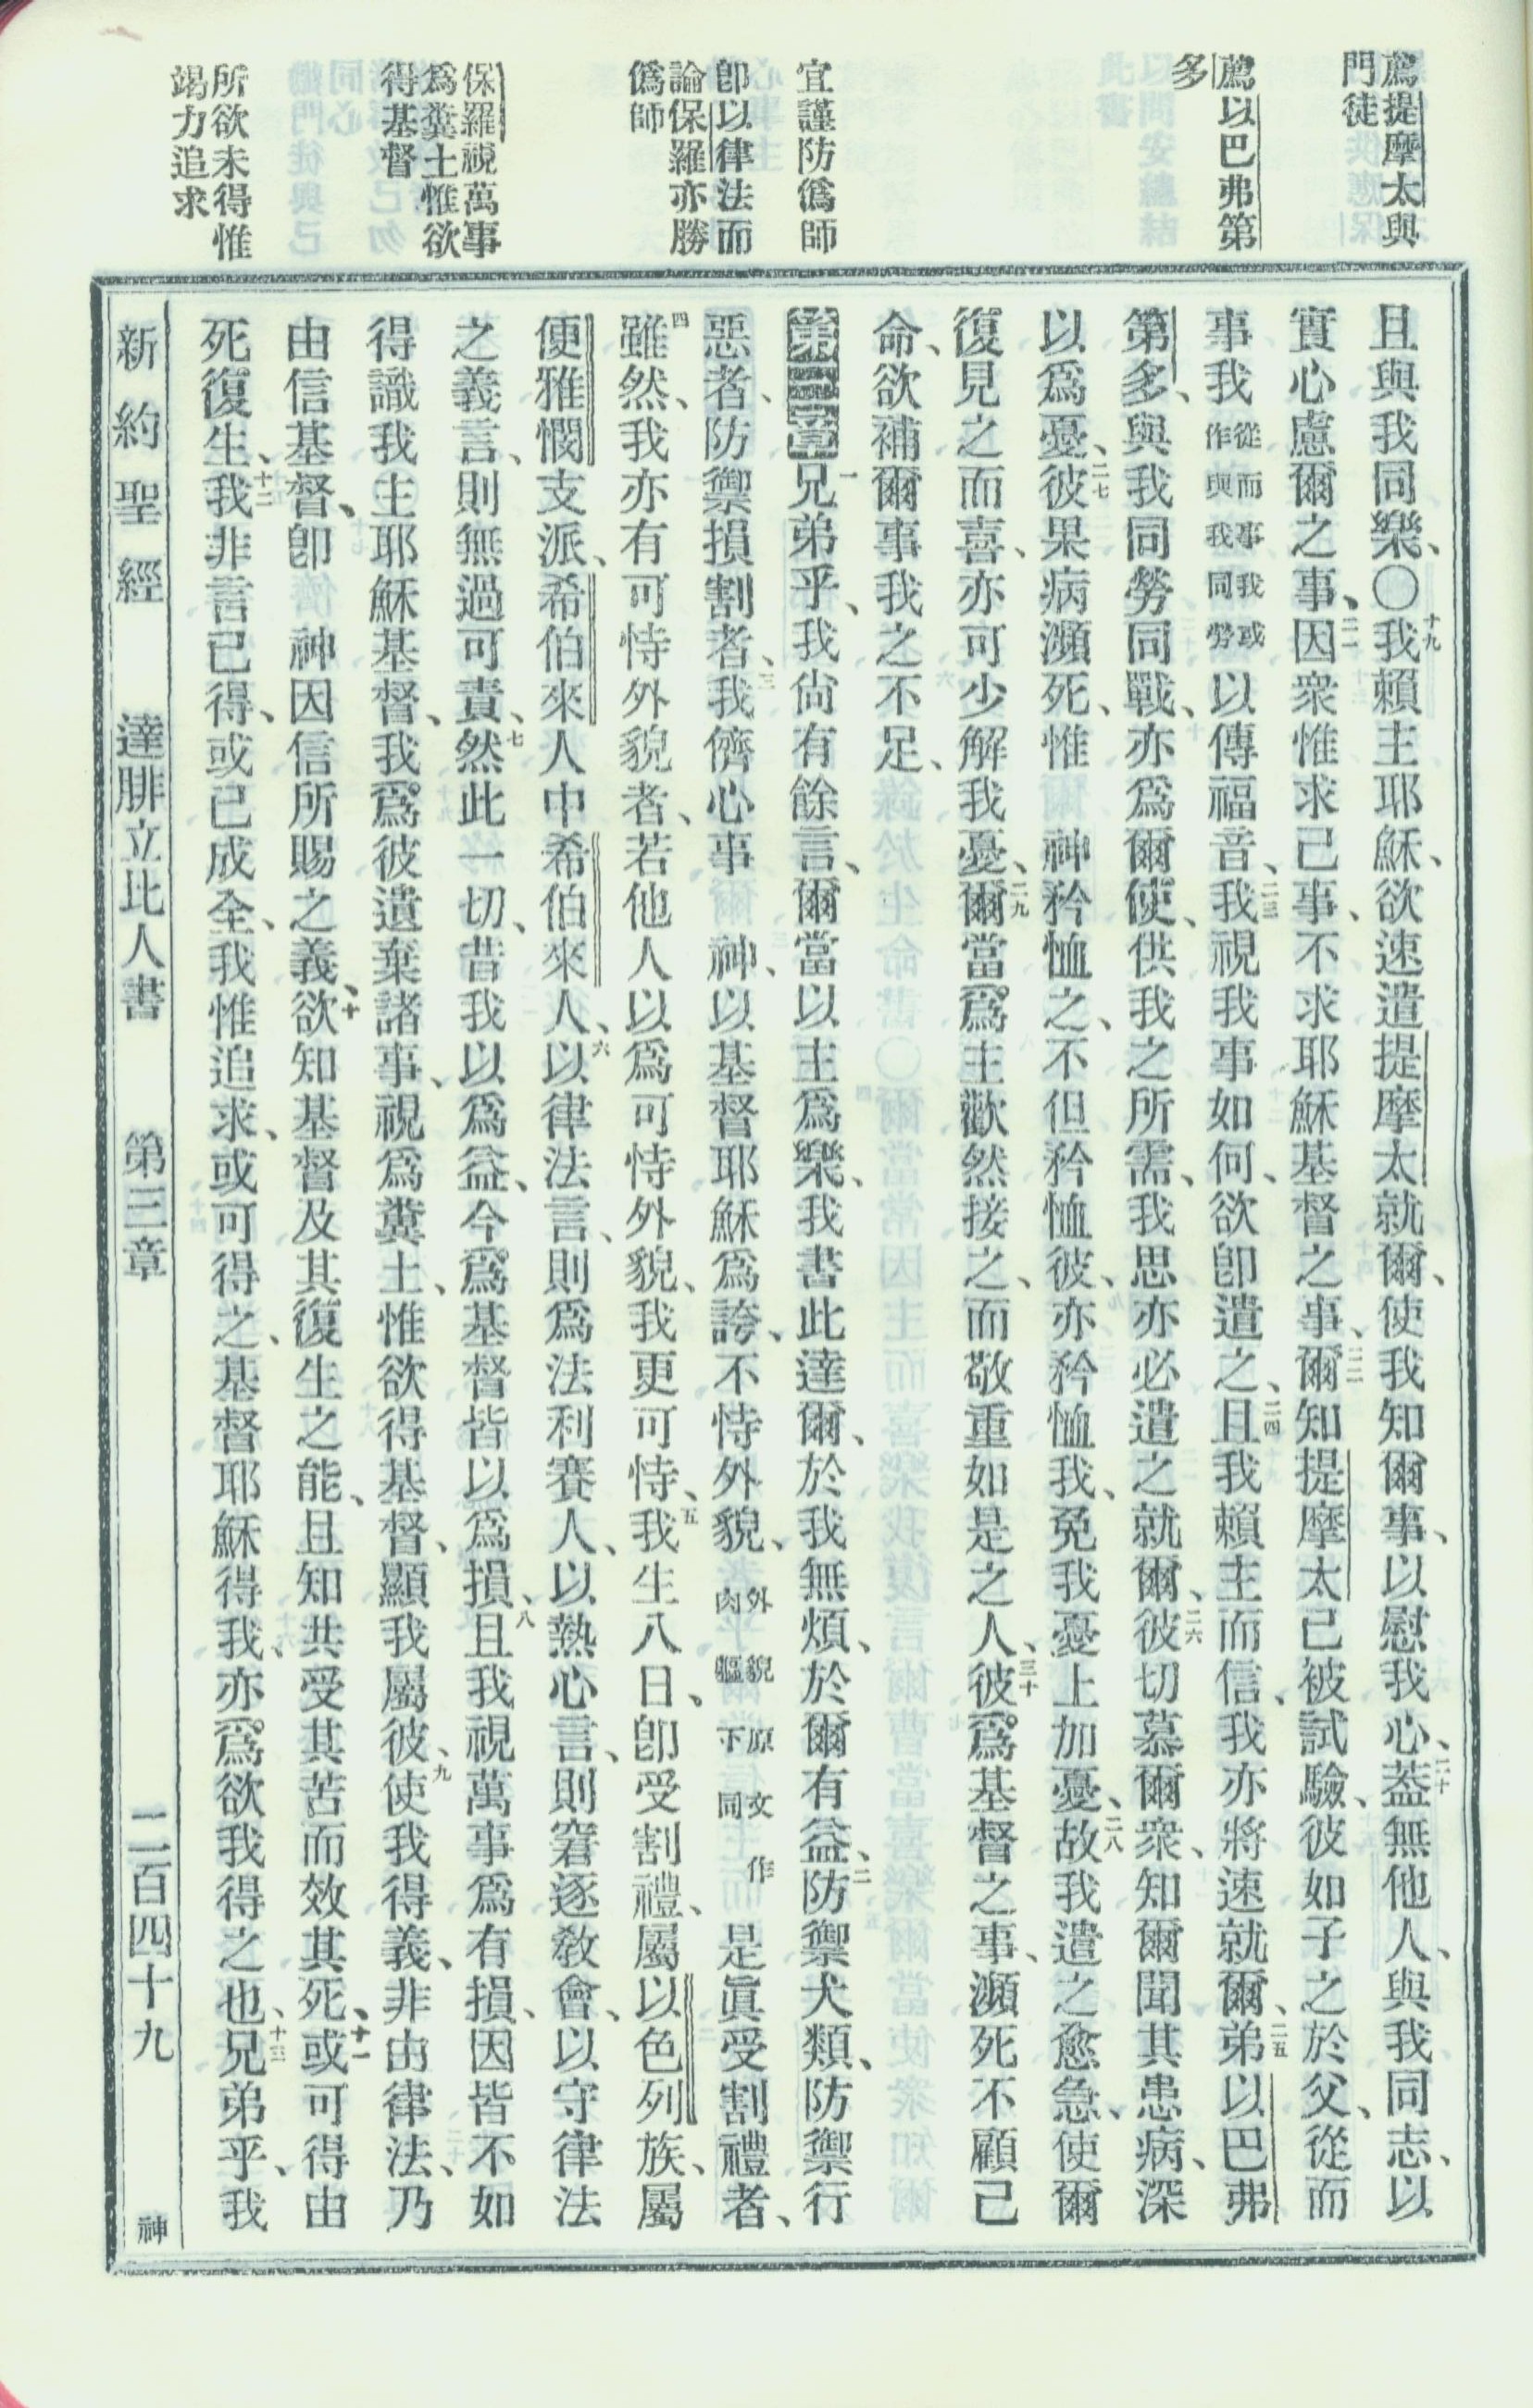 薦提摩太與
門徒
薦以巴弗第
多
宜謹防僞師
卽以律法而
論保羅亦勝
僞師
保羅視萬事
爲糞土惟欲
得基督
所欲未得惟
竭力追求
且與我同樂、〇十九我賴主耶穌、欲速遣提摩太就爾、使我知爾事、以慰我心、二十蓋無他人、與我同志、以
實心慮爾之事、二一因衆惟求己事、不求耶穌基督之事、二二爾知提摩太已被試驗、彼如子之於父、從而
事我從而事我或作與我同勞以傳福音、二三我視我事如何、欲卽遣之、二四且我賴主而信、我亦將速就爾、二五弟以巴弗
第多、與我同勞同戰、亦爲爾使、供我之所需、我思亦必遣之就爾、二六彼切慕爾衆、知爾聞其患病、深
以爲憂、二七彼果病瀕死、惟 神矜恤之、不但矜恤彼、亦矜恤我、免我憂上加憂、二八故我遣之愈急、使爾
復見之而喜、亦可少解我憂、二九爾當爲主歡然接之、而敬重如是之人、三十彼爲基督之事、瀕死不顧己
命、欲補爾事我之不足、
第三章一兄弟乎、我尙有餘言、爾當以主爲樂、我書此達爾、於我無煩、於爾有益、二防禦犬類、防禦行
惡者、防禦損割者、三我儕心事 神、以基督耶穌爲誇、不恃外貌、外貌原文作肉軀下同是眞受割禮者、
四雖然、我亦有可恃外貌者、若他人以爲可恃外貌、我更可恃、五我生八日、卽受割禮、屬以色列族、屬
便雅憫支派、希伯來人中希伯來人、六以律法言、則爲法利賽人、以熱心言、則窘逐敎會、以守律法
之義言、則無過可責、七然此一切、昔我以爲益、今爲基督皆以爲損、八且我視萬事爲有損、因皆不如
得識我主耶穌基督、我爲彼遺棄諸事、視爲糞土、惟欲得基督、顯我屬彼、九使我得義、非由律法、乃
由信基督、卽 神因信所賜之義、十欲知基督及其復生之能、且知共受其苦而效其死、十一或可得由
死復生、十二我非言已得、或已成全、我惟追求、或可得之、基督耶穌得我、亦爲欲我得之也、十三兄弟乎、我
新約聖經 達腓立比人書 第三章 二百四十九 神